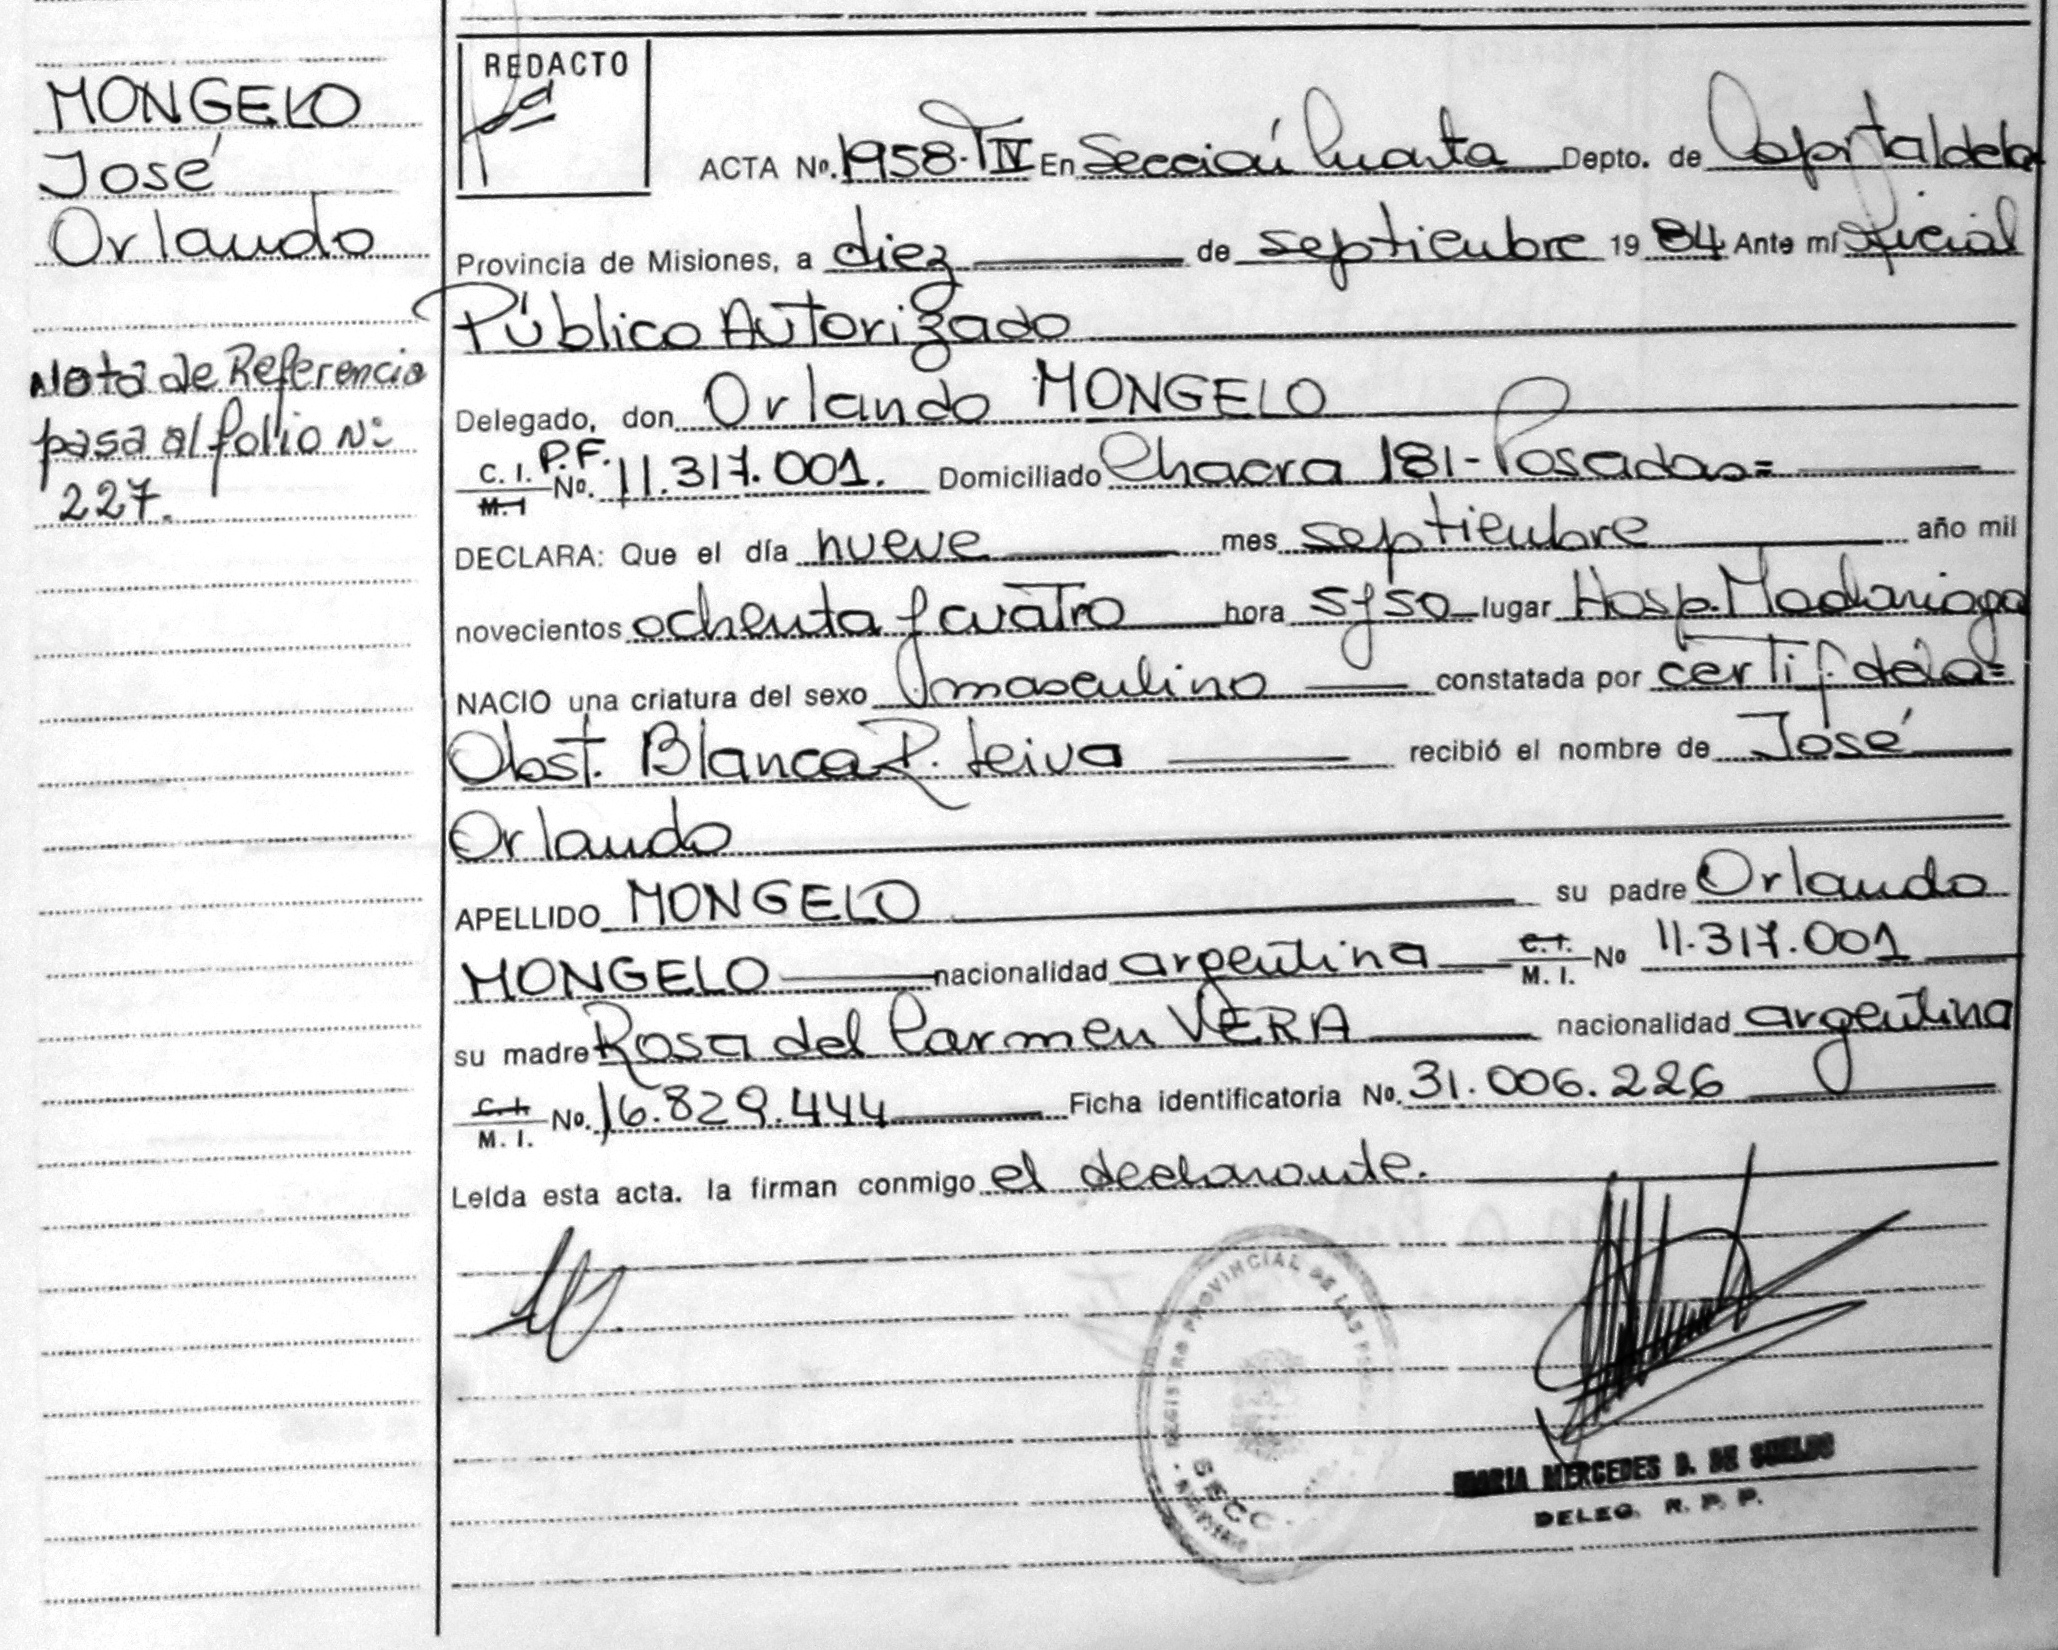 MONGELO
José
Orlando
Nota de Referencia
pasa al folio Nº
227.
REDACTO
ACTA Nº. 1958-TIV En Sección Cuarta Depto. de Capital de la
Provincia de Misiones, a diez de septiembre 1984 Ante mí Oficial
Público Autorizado
Delegado, don Orlando MONGELO
C. I. P.F. M. I Nº. 11.317.001. Domiciliado Chacra 181-Posadas=
DECLARA: Que el día nueve mes septiembre año mil
novecientos ochenta y cuatro hora 5y50 lugar Hosp. Madariaga
NACIO una criatura del sexo masculino constatada por certif. de la=
Obst. Blanca R. Leiva recibió el nombre de José
Orlando
APELLIDO MONGELO su padre Orlando
MONGELO nacionalidad argentina C. I. M. I. Nº 11.317.001
su madre Rosa del Carmen VERA nacionalidad argentina
C. I. M. I. Nº. 16.829.444 Ficha identificatoria Nº. 31.006.226
Leída esta acta. la firman conmigo el declarante.
REGISTRO PROVINCIAL DE LAS
SECC.
MARIA MERCEDES D. DE SUELDO
DELEG. R. P. P.